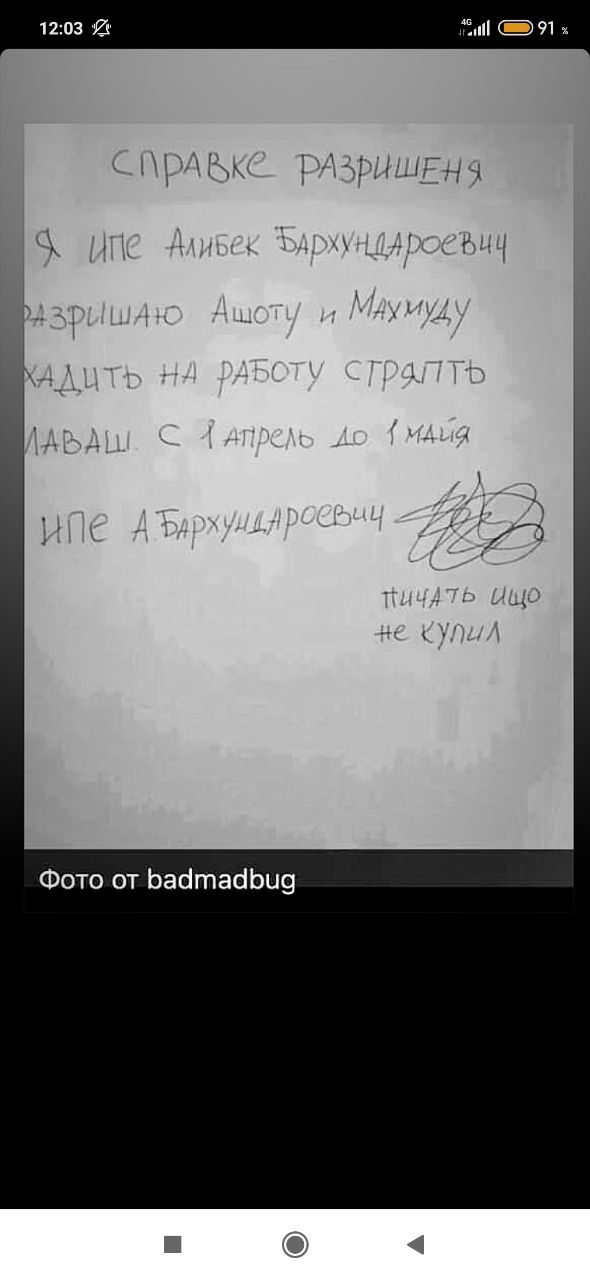 12:03
4G
91 %
СПРАВКЕ РАЗРИШЕНЯ
Я ИПЕ АЛИБЕК БАРХУНДАРОЕВИЧ
РАЗРИШАЮ АШОТУ и МАХМУДУ
ХАДИТЬ НА РАБОТУ СТРЯПТЬ
ЛАВАШ. С 1 АПРЕЛЬ ДО 1 МАЙЯ
ИПЕ А.БАРХУНДАРОЕВИЧ
ПИЧАТЬ ИЩО
НЕ КУПИЛ
Фото от badmadbug